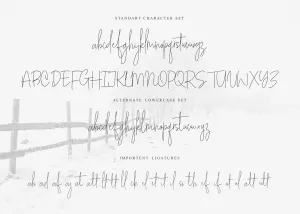 STANDART CHARACTER SET
abcdefghijklmnopqrstuvwxyz
ABCDEFGHIJKLMNOPQRSTUVWXYZ
ALTERNATE LOWERCASE SET
abcdefghijklmnopqrstuvwxyz
IMPORTENT LIGATURES